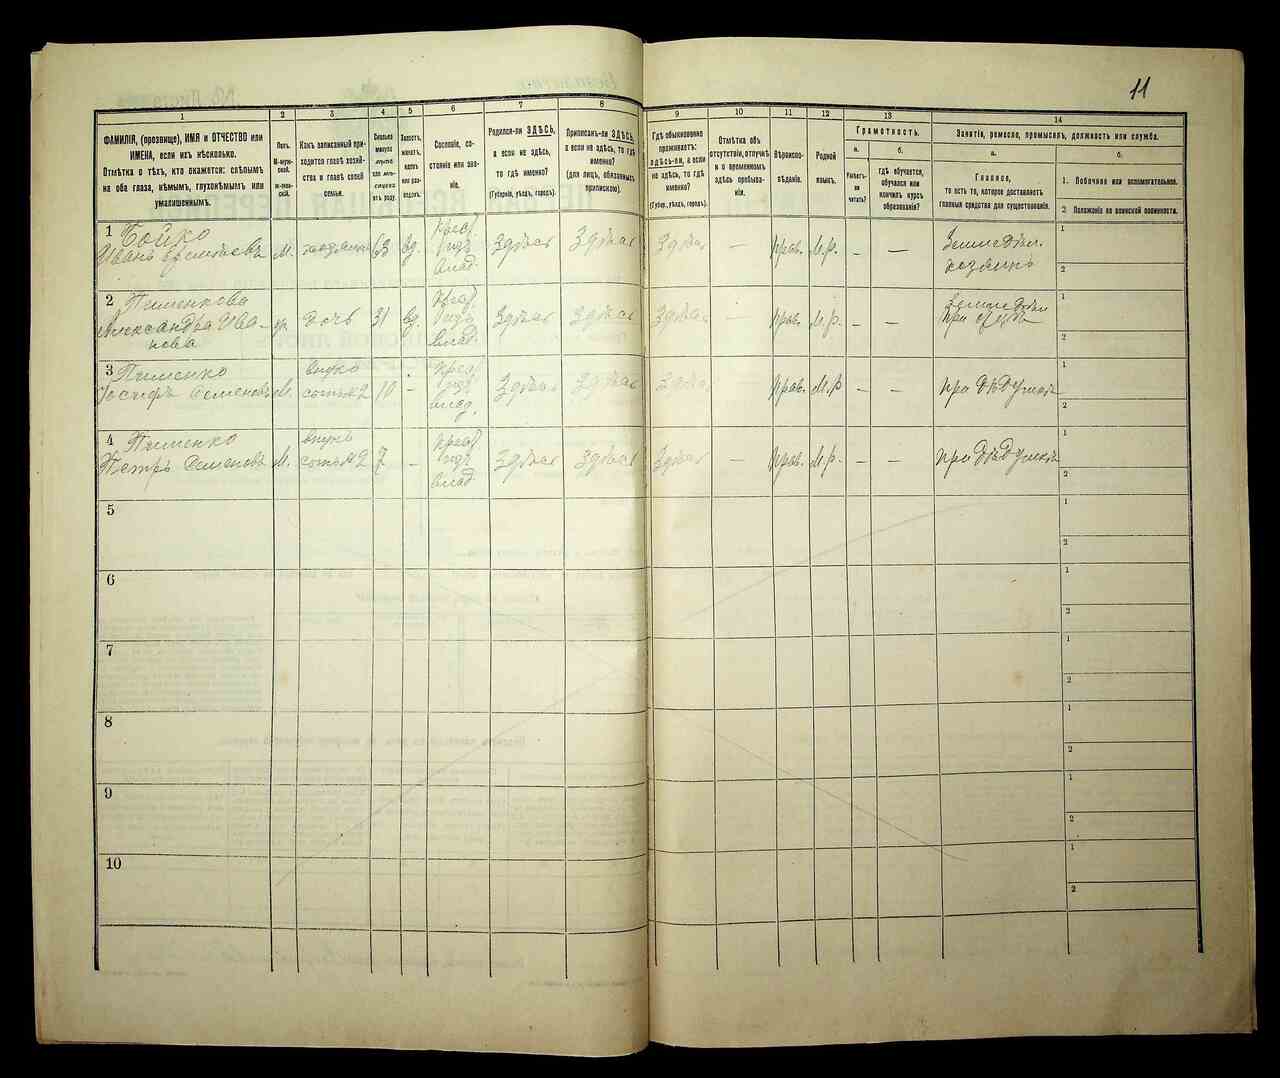 11
1
ФАМИЛІЯ, (прозвище), ИМЯ и ОТЧЕСТВО или
ИМЕНА, если ихъ нѣсколько.
Отмѣтка о тѣхъ, кто окажется: слѣпымъ
на оба глаза, нѣмымъ, глухонѣмымъ или
умалишеннымъ.
2
Полъ.
3
Какъ записанный при-
ходится главѣ хозяй-
ства и главѣ своей
семьи.
4
Сколько
минуло
лѣтъ
или мѣ-
сяцевъ
отъ роду.
5
Холостъ,
женатъ,
вдовъ
или раз-
веденъ.
6
Сословіе, со-
стояніе или зва-
ніе.
7
Родился-ли ЗДѢСЬ,
а если не здѣсь,
то гдѣ именно?
(Губернія, уѣздъ, городъ).
8
Приписанъ-ли ЗДѢСЬ,
а если не здѣсь, то гдѣ
именно?
(для лицъ, обязанныхъ
припискою).
9
Гдѣ обыкновенно
проживаетъ:
здѣсь-ли, а если
не здѣсь, то гдѣ
именно?
(Губер., уѣздъ, городъ).
10
Отмѣтка объ
отсутствіи, отлучкѣ
и о временномъ
здѣсь пребыва-
ніи.
11
Вѣроиспо-
вѣданіе.
12
Родной
языкъ.
13
Грамотность.
а.
Умѣетъ-
ли
читать?
б.
гдѣ обучается,
обучался или
кончилъ курсъ
образованія?
14
Занятіе, ремесло, промыселъ, должность или служба.
а.
Главное,
то есть то, которое доставляетъ
главныя средства для существованія.
б.
1. Побочное или вспомогательное.
2 Положеніе по воинской повинности.
1 Бойко
Иванъ
М.
хозяинъ
63
вд.
Крест.
влад.
Здѣсь
Здѣсь
Здѣсь
—
Прав.
М.р.
–
—
Земледѣл.
хозяинъ
1
2
2 Пименкова
Александра Ива-
нова
дочь
31
вд.
Крест.
влад.
Здѣсь
Здѣсь
Здѣсь
—
Прав.
М.р.
–
–
Земледѣл
при отцѣ
1
2
3 Пименко
Іосифъ Семеновъ
М.
внукъ
10
–
Крест.
влад.
Здѣсь
Здѣсь
Здѣсь
Прав.
М.р
–
–
при дѣдушкѣ
1
2
4 Пименко
Петръ Семеновъ
М.
внукъ
7
–
Крест.
влад.
Здѣсь
Здѣсь
Здѣсь
—
Прав.
М.р.
–
–
при дѣдушкѣ
1
2
5
1
2
6
1
2
7
1
2
8
1
2
9
1
2
10
1
2